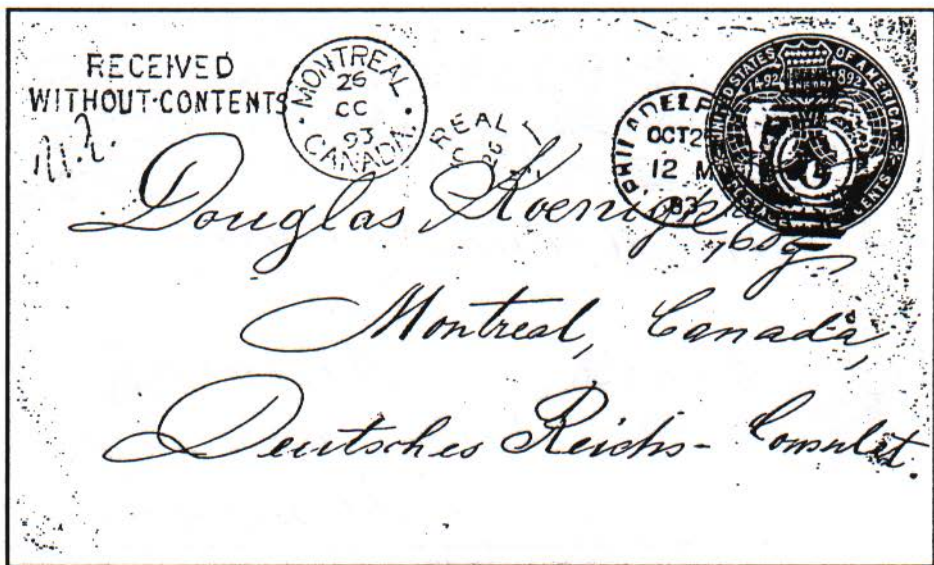 RECEIVED
WITHOUT·CONTENTS
MONTREAL
26
OC
93
CANADA.
REAL
26
PHILADELP
OCT 2
12 M
93
UNITED STATES OF AMERICA
1492 1892
POSTAGE CENTS
Douglas
Esq
Montreal, Canada,
Deutsches Reichs- Consulat.